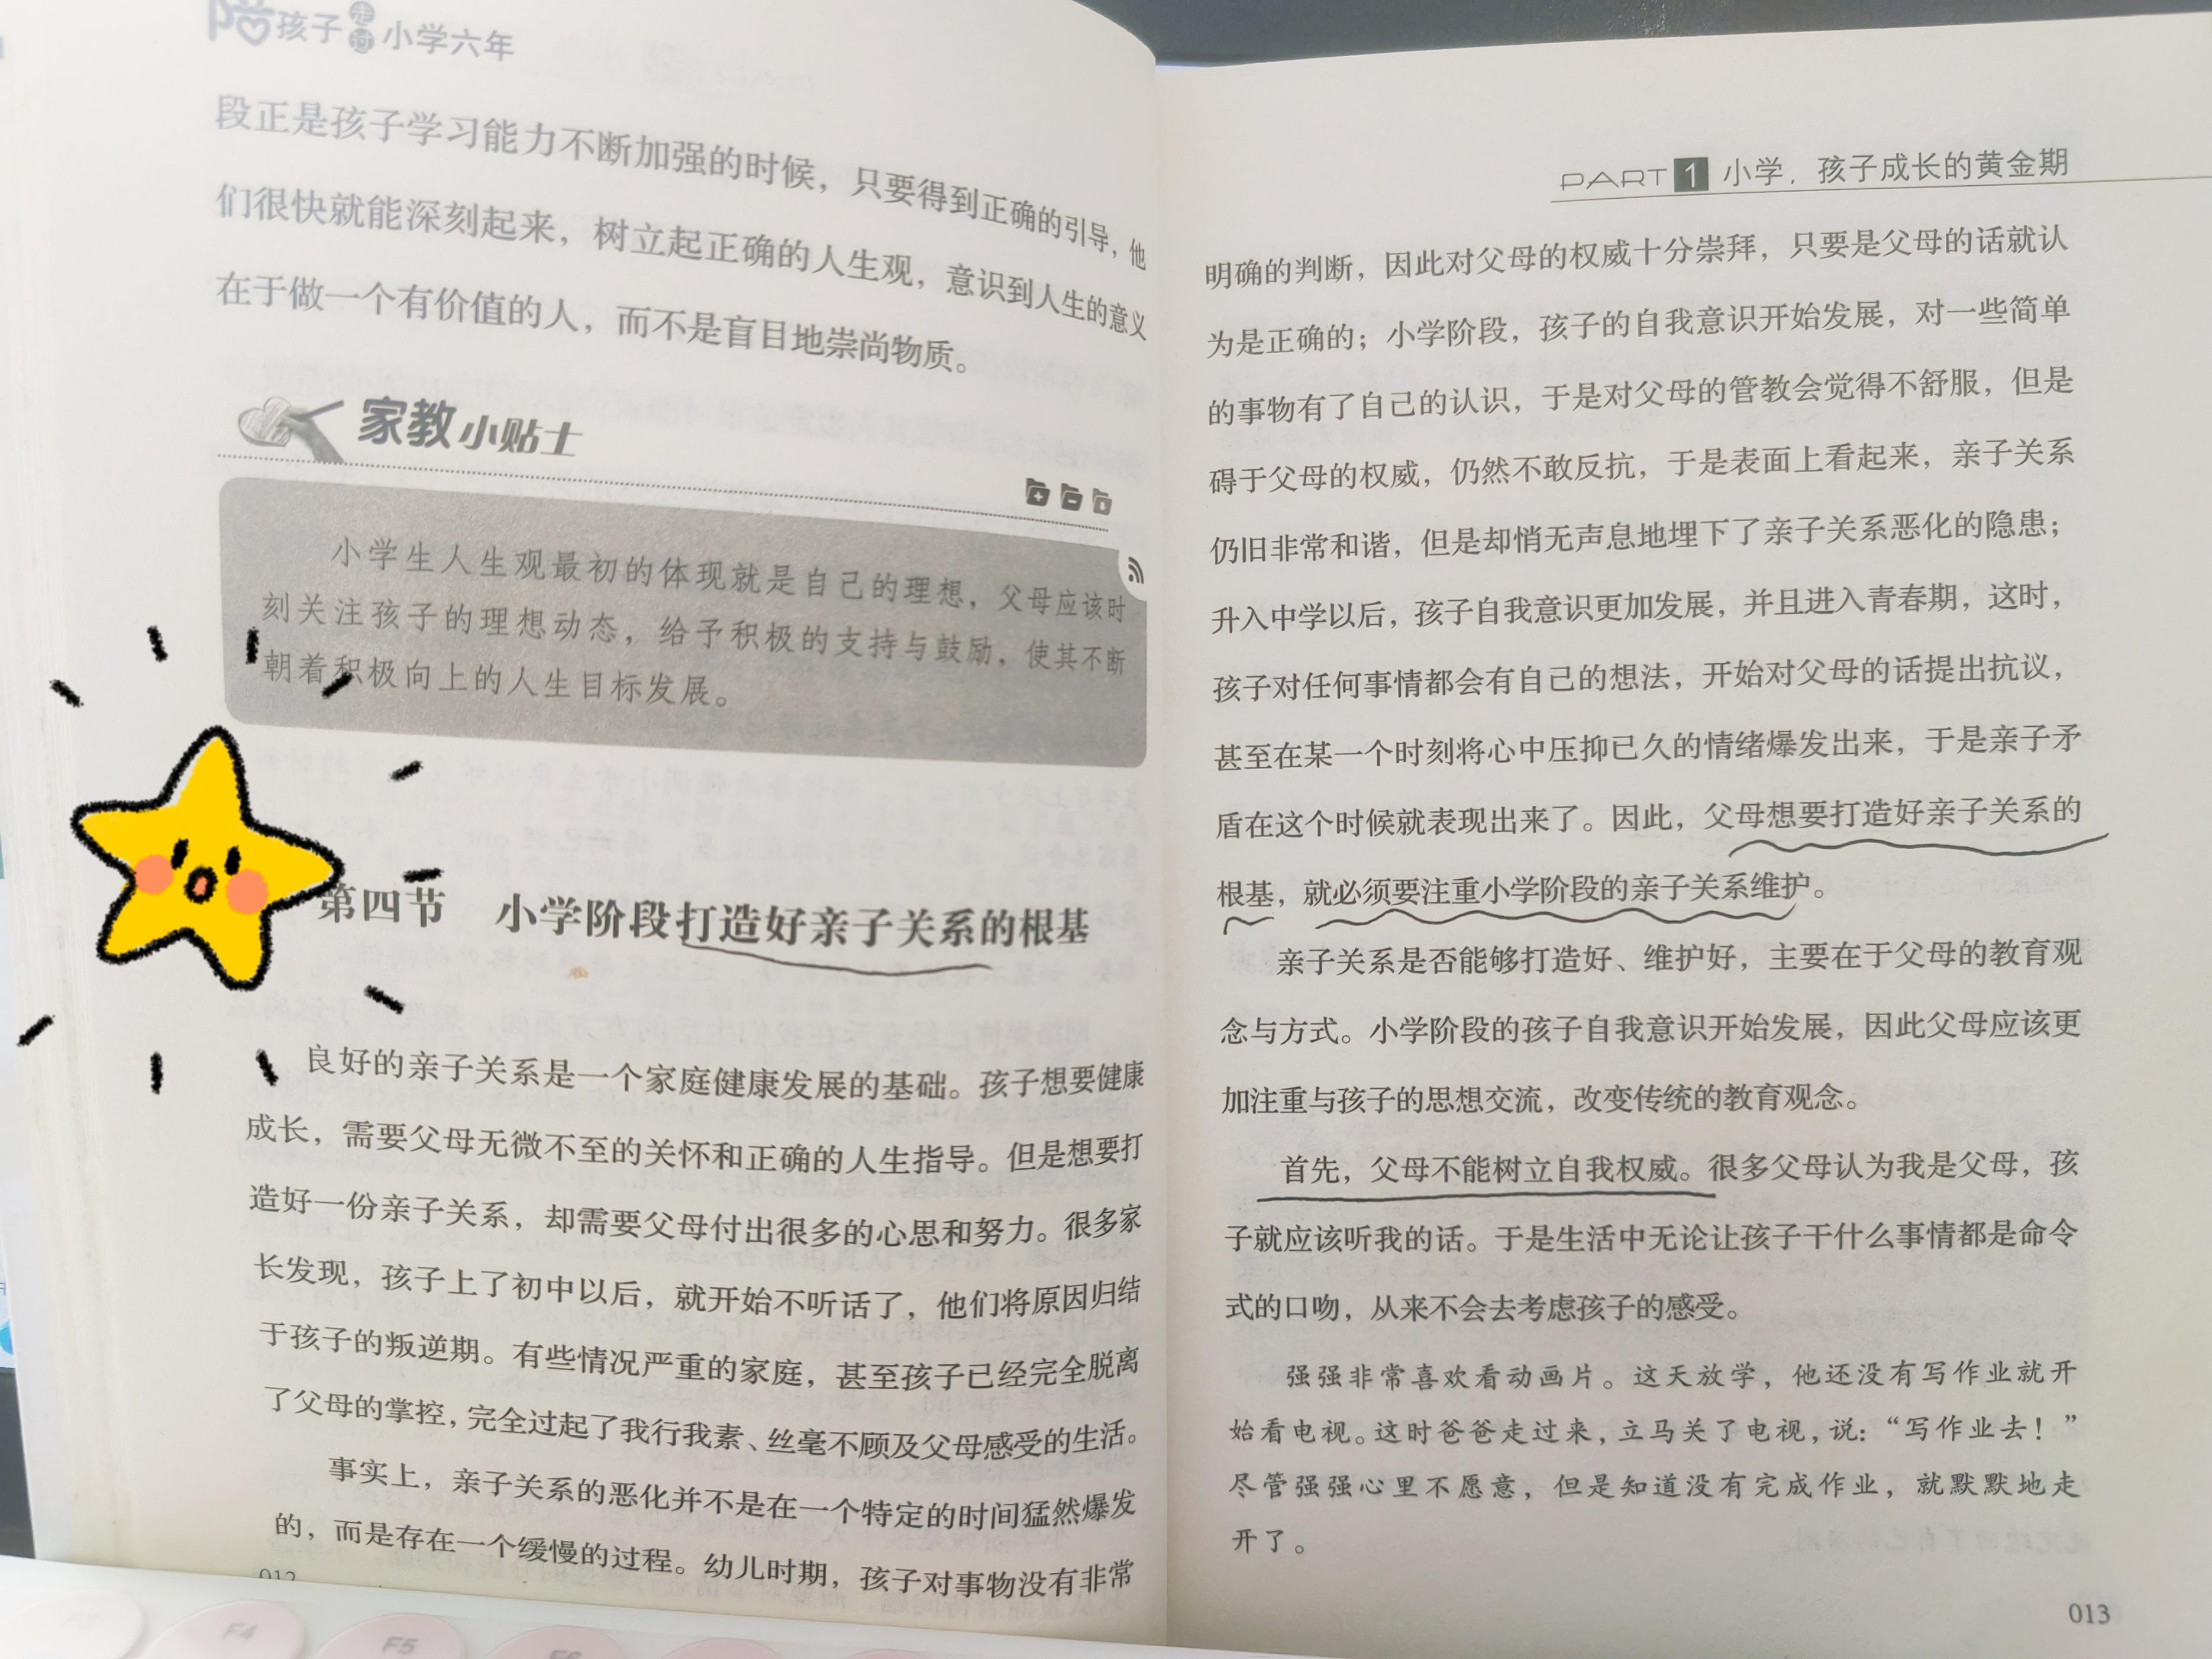 陪孩子走过小学六年
段正是孩子学习能力不断加强的时候，只要得到正确的引导，他
们很快就能深刻起来，树立起正确的人生观，意识到人生的意义
在于做一个有价值的人，而不是盲目地崇尚物质。
家教小贴士
小学生人生观最初的体现就是自己的理想，父母应该时
刻关注孩子的理想动态，给予积极的支持与鼓励，使其不断
朝着积极向上的人生目标发展。
第四节 小学阶段打造好亲子关系的根基
良好的亲子关系是一个家庭健康发展的基础。孩子想要健康
成长，需要父母无微不至的关怀和正确的人生指导。但是想要打
造好一份亲子关系，却需要父母付出很多的心思和努力。很多家
长发现，孩子上了初中以后，就开始不听话了，他们将原因归结
于孩子的叛逆期。有些情况严重的家庭，甚至孩子已经完全脱离
了父母的掌控，完全过起了我行我素、丝毫不顾及父母感受的生活。
事实上，亲子关系的恶化并不是在一个特定的时间猛然爆发
的，而是存在一个缓慢的过程。幼儿时期，孩子对事物没有非常
012
PART 1 小学，孩子成长的黄金期
明确的判断，因此对父母的权威十分崇拜，只要是父母的话就认
为是正确的；小学阶段，孩子的自我意识开始发展，对一些简单
的事物有了自己的认识，于是对父母的管教会觉得不舒服，但是
碍于父母的权威，仍然不敢反抗，于是表面上看起来，亲子关系
仍旧非常和谐，但是却悄无声息地埋下了亲子关系恶化的隐患；
升入中学以后，孩子自我意识更加发展，并且进入青春期，这时，
孩子对任何事情都会有自己的想法，开始对父母的话提出抗议，
甚至在某一个时刻将心中压抑已久的情绪爆发出来，于是亲子矛
盾在这个时候就表现出来了。因此，父母想要打造好亲子关系的
根基，就必须要注重小学阶段的亲子关系维护。
亲子关系是否能够打造好、维护好，主要在于父母的教育观
念与方式。小学阶段的孩子自我意识开始发展，因此父母应该更
加注重与孩子的思想交流，改变传统的教育观念。
首先，父母不能树立自我权威。很多父母认为我是父母，孩
子就应该听我的话。于是生活中无论让孩子干什么事情都是命令
式的口吻，从来不会去考虑孩子的感受。
强强非常喜欢看动画片。这天放学，他还没有写作业就开
始看电视。这时爸爸走过来，立马关了电视，说：“写作业去！”
尽管强强心里不愿意，但是知道没有完成作业，就默默地走
开了。
013
F4
F5